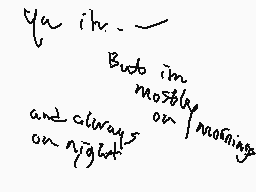 Ya ik.
But im
mostly
on mornings
and always
on night